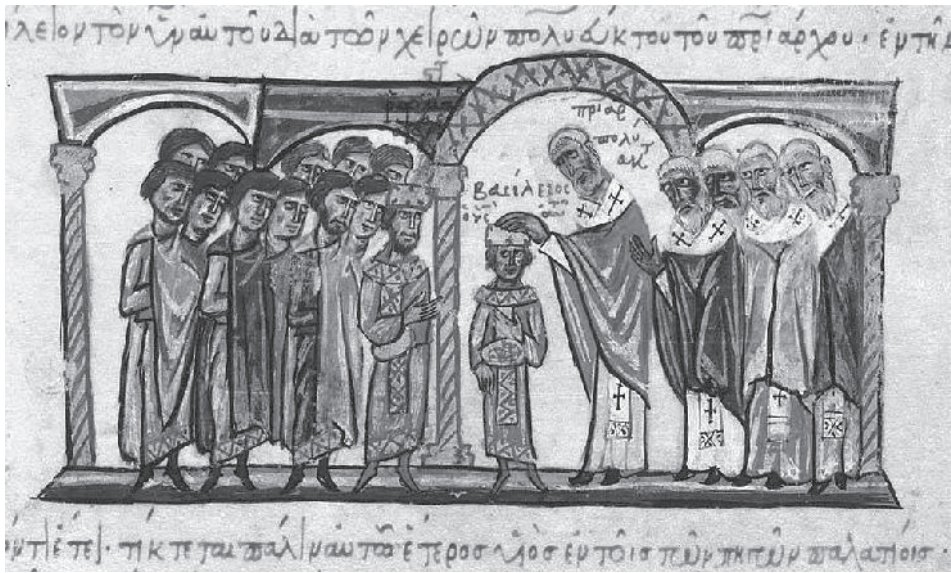 λειον τὸν ὑν αυτοῦ διὰ τῶν χειρῶν πολυεύκτου τοῦ πριάρχου · ἐν τη
πριαρ
πολυ
βασίλειος
έτει · τήκτεται πάλιν αυτῶ έτερος ὑὸς ἐν τοῖς τῶν πηγῶν παλατίοις ·